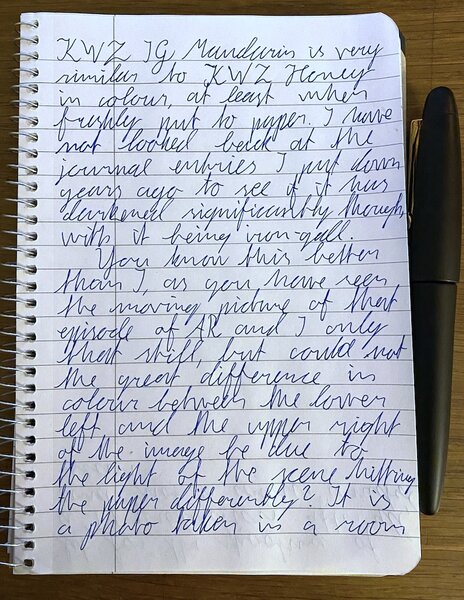 KWZ IG Mandarin is very
similar to KWZ Honey
in colour, at least when
freshly put to paper. I have
not looked back at the
journal entries I put down
years ago to see if it has
darkened significantly though,
with it being iron-gall.
You know this better
than I, as you have seen
the moving picture of that
episode of AR and I only
that still, but could not
the great difference in
colour between the lower
left and the upper right
of the image be due to
the light of the scene hitting
the paper differently? It is
a photo taken in a room